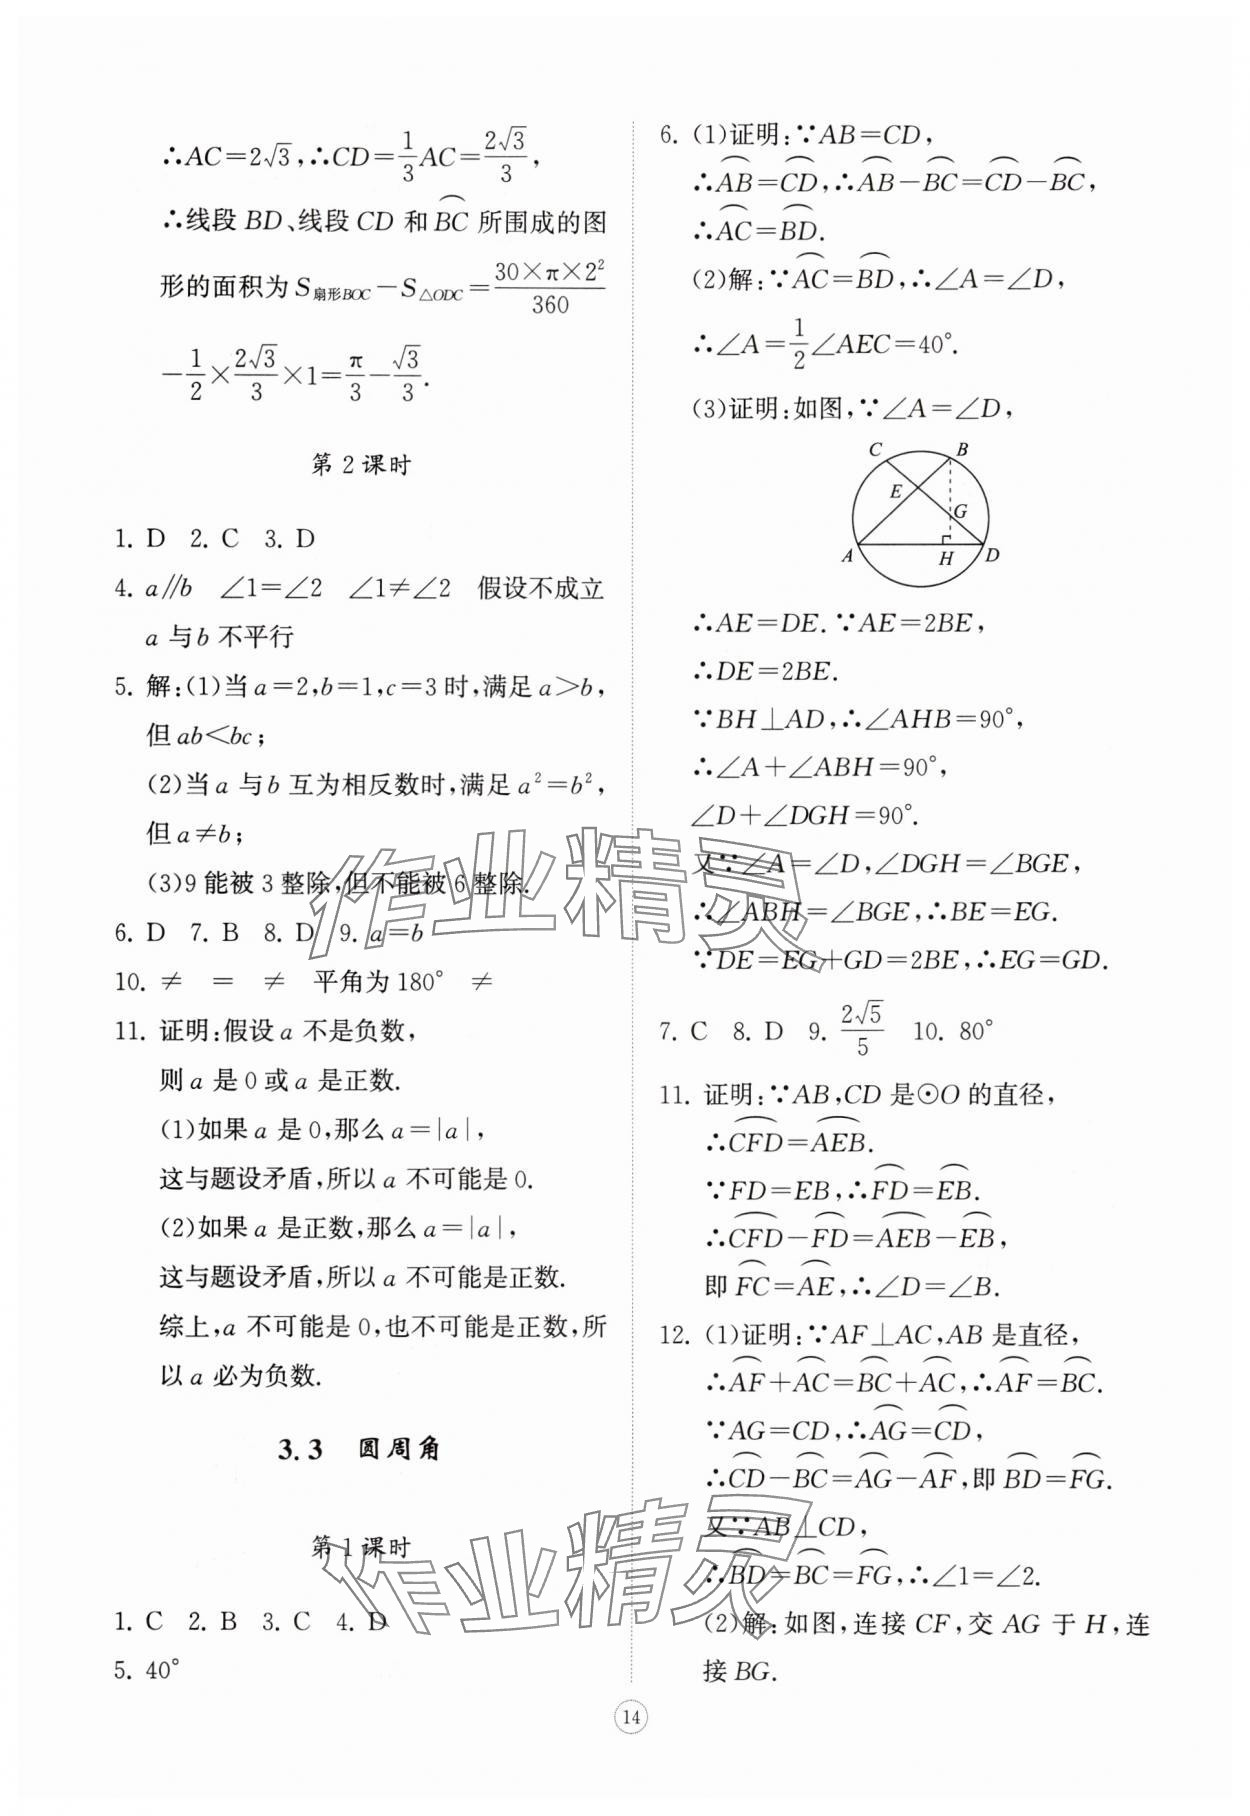 ∴AC=2√3,∴CD=1/3AC=2√3/3,
∴线段 BD、线段 CD 和 BC⌒ 所围成的图
形的面积为 S扇形BOC－S△ODC=30×π×2²/360
－1/2×2√3/3×1=π/3－√3/3.
第 2 课时
1. D 2. C 3. D
4. a∥b ∠1=∠2 ∠1≠∠2 假设不成立
a 与 b 不平行
5. 解:(1)当 a=2,b=1,c=3 时,满足 a>b,
但 ab<bc;
(2)当 a 与 b 互为相反数时,满足 a²=b²,
但 a≠b;
(3)9 能被 3 整除,但不能被 6 整除.
6. D 7. B 8. D 9. a=b
10. ≠ = ≠ 平角为 180° ≠
11. 证明:假设 a 不是负数,
则 a 是 0 或 a 是正数.
(1)如果 a 是 0,那么 a=|a|,
这与题设矛盾,所以 a 不可能是 0.
(2)如果 a 是正数,那么 a=|a|,
这与题设矛盾,所以 a 不可能是正数.
综上,a 不可能是 0,也不可能是正数,所
以 a 必为负数.
3.3 圆周角
第 1 课时
1. C 2. B 3. C 4. D
5. 40°
6. (1)证明:∵AB=CD,
∴AB⌒=CD⌒,∴AB⌒－BC⌒=CD⌒－BC⌒,
∴AC⌒=BD⌒.
(2)解:∵AC⌒=BD⌒,∴∠A=∠D,
∴∠A=1/2∠AEC=40°.
(3)证明:如图,∵∠A=∠D,
C B
E
G
A H D
∴AE=DE.∵AE=2BE,
∴DE=2BE.
∵BH⊥AD,∴∠AHB=90°,
∴∠A+∠ABH=90°,
∠D+∠DGH=90°.
又∵∠A=∠D,∠DGH=∠BGE,
∴∠ABH=∠BGE,∴BE=EG.
∵DE=EG+GD=2BE,∴EG=GD.
7. C 8. D 9. 2√5/5 10. 80°
11. 证明:∵AB,CD 是⊙O 的直径,
∴CFD⌒=AEB⌒.
∵FD=EB,∴FD⌒=EB⌒.
∴CFD⌒－FD⌒=AEB⌒－EB⌒,
即 FC⌒=AE⌒,∴∠D=∠B.
12. (1)证明:∵AF⊥AC,AB 是直径,
∴AF⌒+AC⌒=BC⌒+AC⌒,∴AF⌒=BC⌒.
∵AG=CD,∴AG⌒=CD⌒,
∴CD⌒－BC⌒=AG⌒－AF⌒,即 BD⌒=FG⌒.
又∵AB⊥CD,
∴BD⌒=BC⌒=FG⌒,∴∠1=∠2.
(2)解:如图,连接 CF,交 AG 于 H,连
接 BG.
14
作业精灵
作业精灵